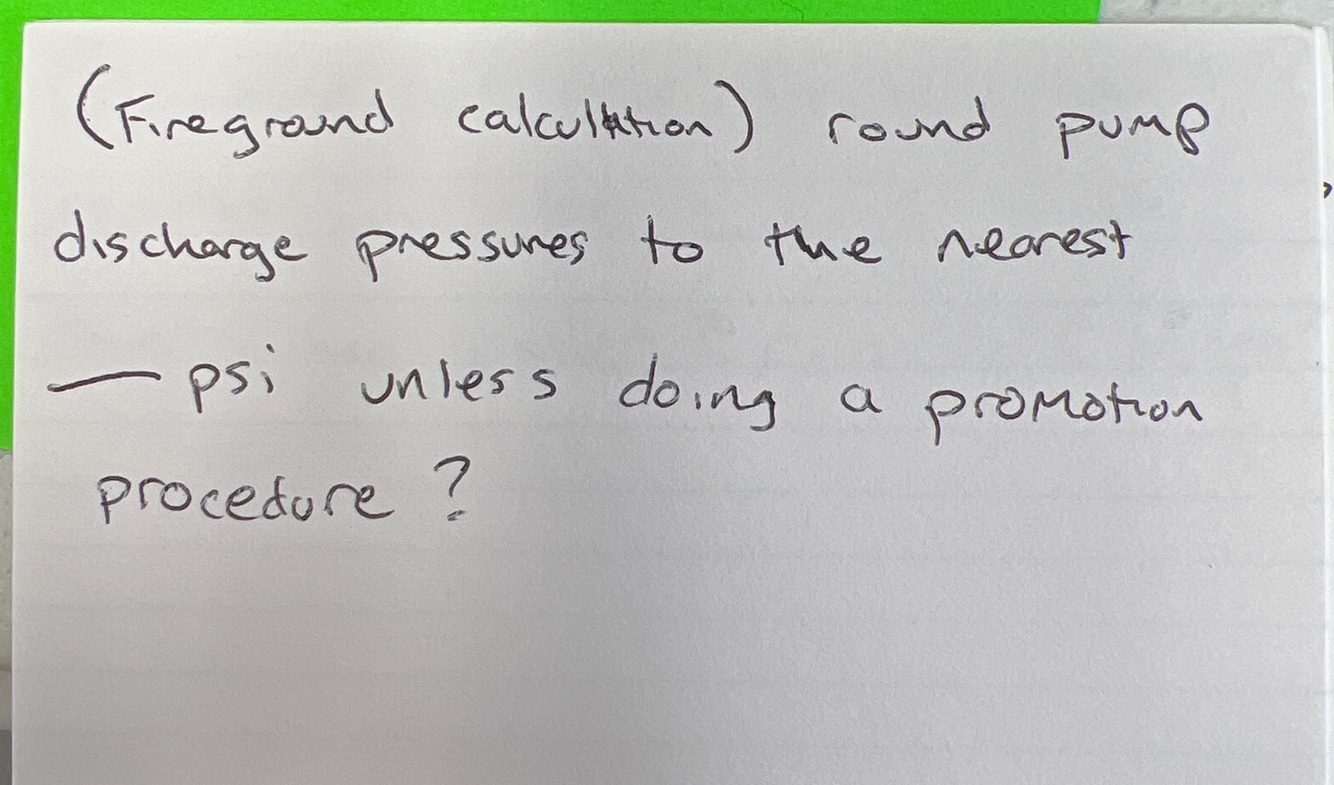 (Fireground calculation) round pump
discharge pressures to the nearest
— psi unless doing a promotion
procedure?